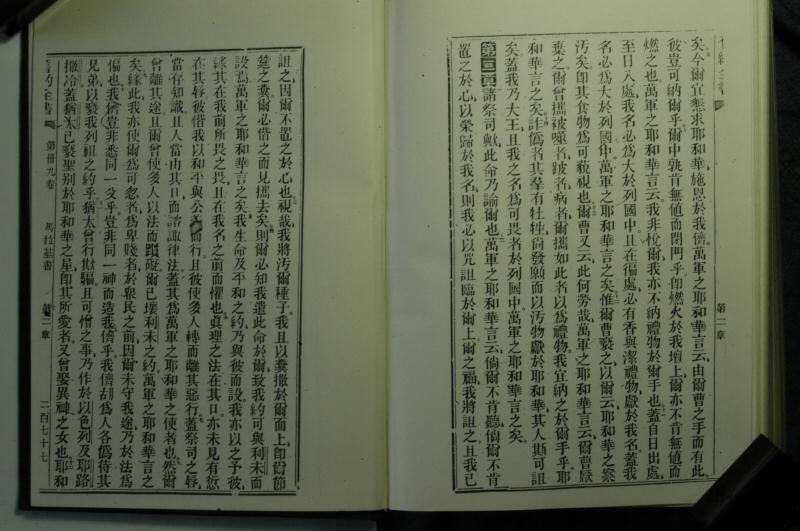 矣今爾宜懇求耶和華施恩於我儕萬軍之耶和華言云由爾曹之手而有此
彼豈可納爾乎爾中孰肯無値而閉門乎卽燃火於我壇上爾亦不肯無値而
燃之也萬軍之耶和華言云我非悅爾我亦不納禮物於爾手也蓋自日出處
至日入處我名必爲大於列國中且在徧處必有香與潔禮物獻於我名蓋我
名必爲大於列國中萬軍之耶和華言之矣惟爾曹褻之以爾云耶和華之案
汚矣卽其食物爲可藐視也爾曹又云此何勞哉萬軍之耶和華言云爾曹厭
棄之爾曾攜被噬者跛者病者爾攜如此者以爲禮物我宜納之於爾手乎耶
和華言之矣詐僞者其羣有牡牲尙發願而以汚物獻於耶和華其人斯可詛
矣蓋我乃大王且我之名爲可畏者於列國中萬軍之耶和華言之矣
第二章諸祭司歟此命乃諭爾也萬軍之耶和華言云倘爾不肯聽倘爾不肯
置之於心以榮歸於我名則我必以咒詛臨於爾上爾之福我將詛之且我已
第二章
詛之因爾不置之於心也視哉我將汚爾種子我且以糞撒於爾面上卽爾節
筵之糞爾必偕之而見攜去矣則爾必知我遣此命於爾致我約可與利未而
設焉萬軍之耶和華言之矣我生命及平和之約乃與彼而設我亦以之予彼
緣其在我前所畏之畏且在我名之前而懼也眞理之法在其口亦未見有愆
在其唇彼偕我以和平與公義而行且彼使多人轉而離其惡行蓋祭司之唇
當存知識且人當由其口而諮諏律法蓋其爲萬軍之耶和華之使者也然爾
曾離其途且爾曾使多人以法而躓礙爾已壞利未之約萬軍之耶和華言之
矣緣此我亦使爾爲可忽者爲卑賤者於衆民之前因爾未守我途乃於法爲
偏也我儕豈非悉同一父乎豈非同一神而造我儕乎我儕胡爲人各爲待其
兄弟以褻我列祖之約乎猶太曾行欺騙且可憎之事乃作於以色列及耶路
撒冷蓋猶太已褻聖別於耶和華之星卽其所愛者又曾娶異神之女也耶和
舊約全書
第卅九卷
馬拉基書
第二章
二百七十七